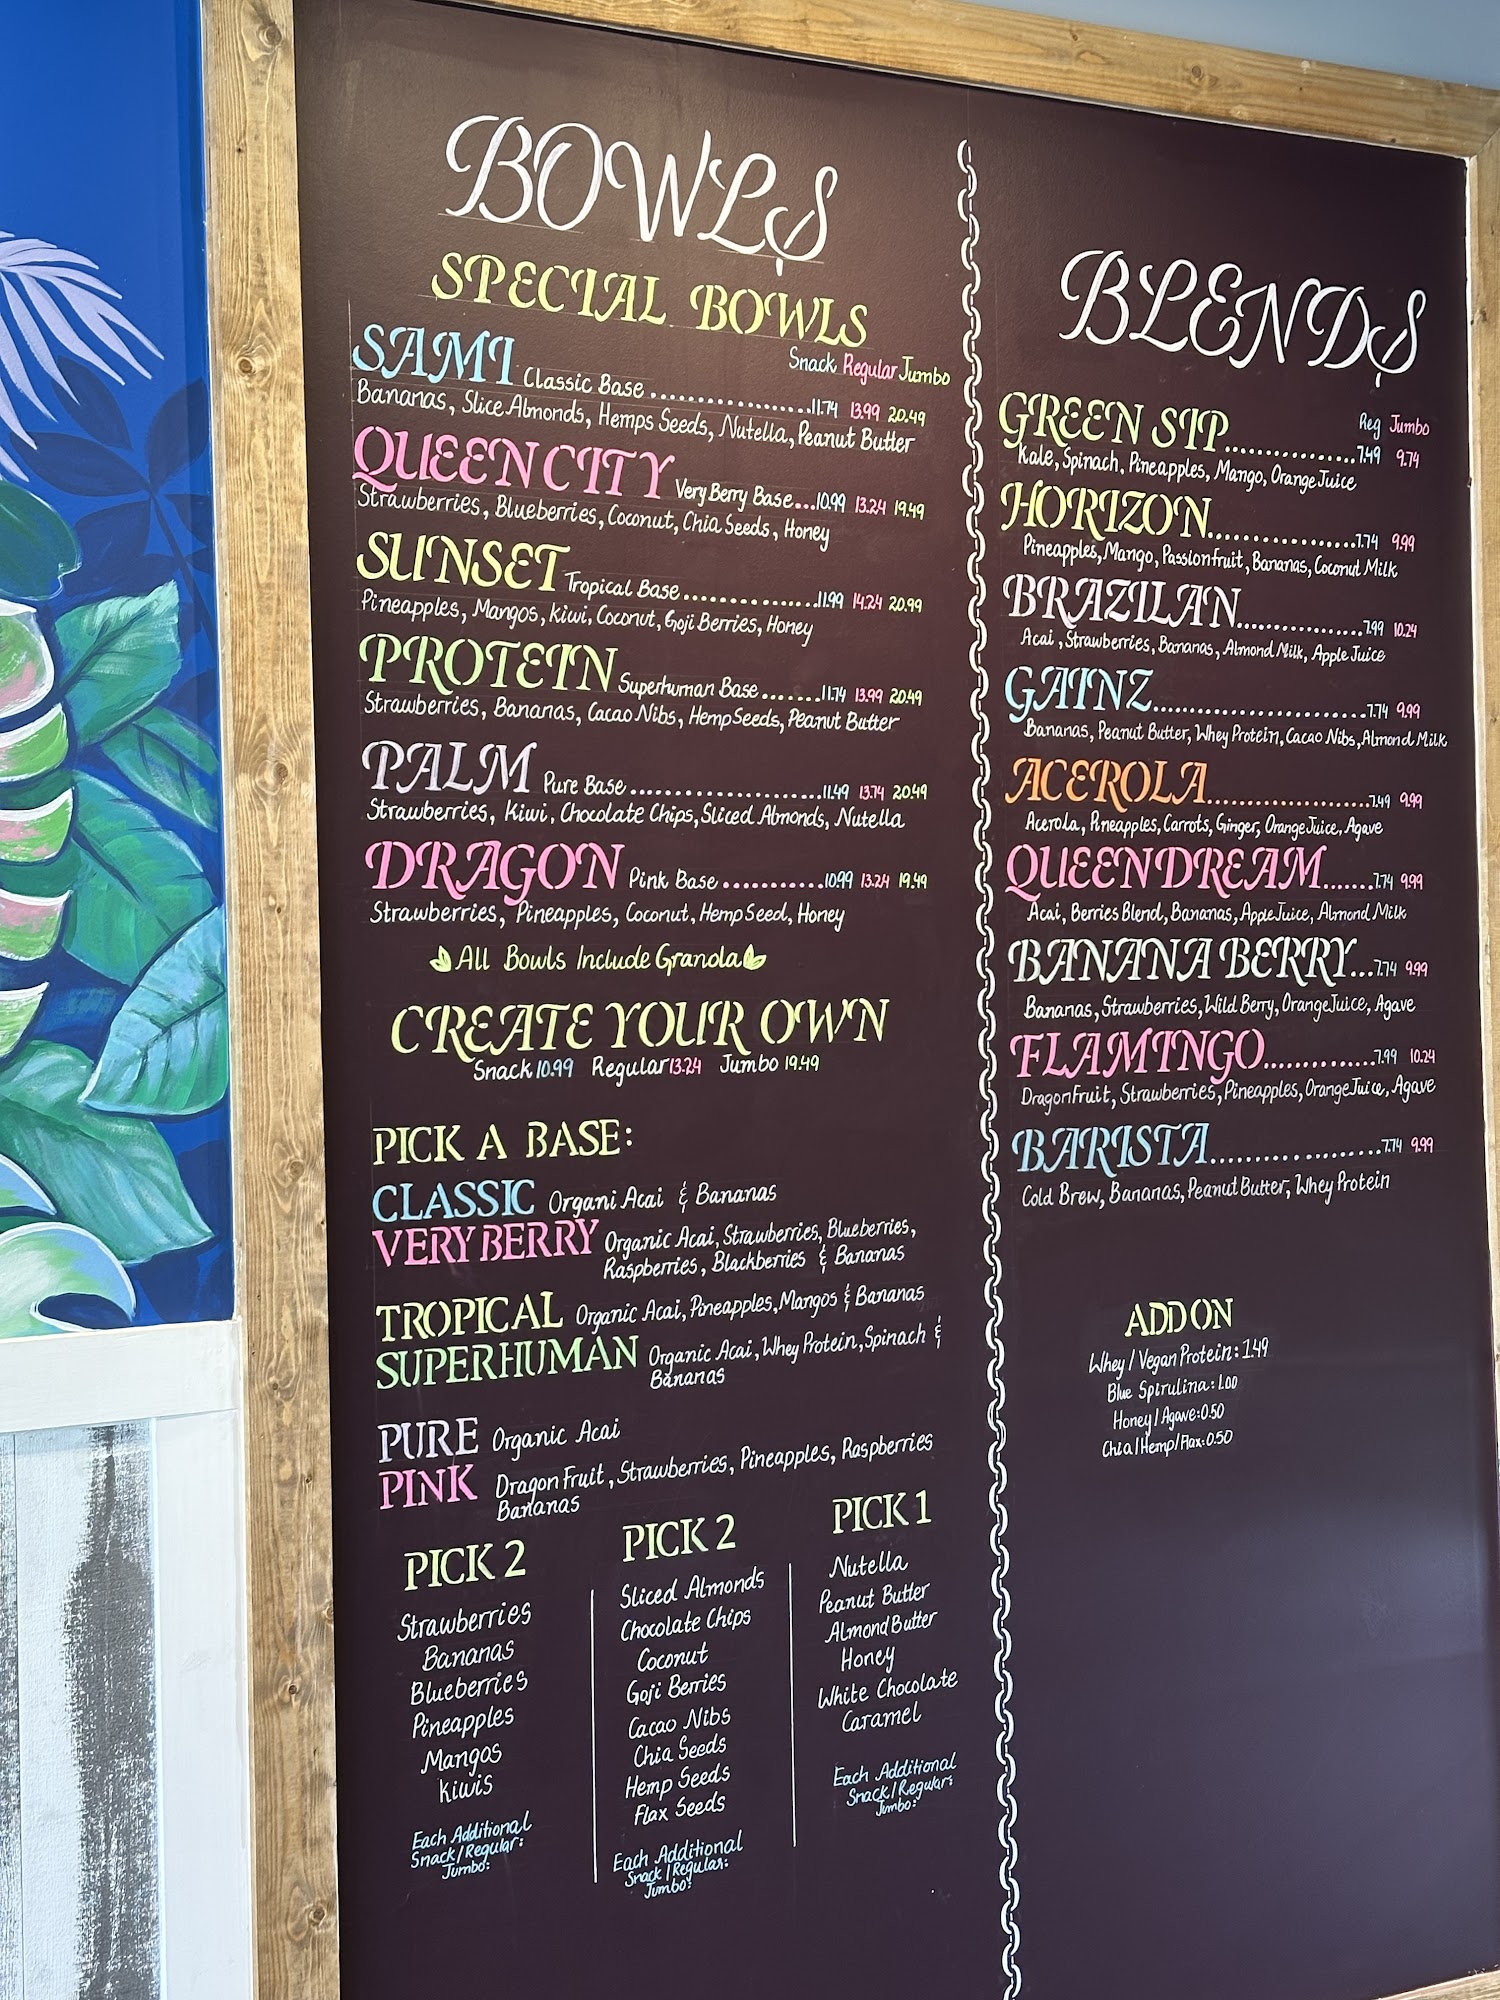 BOWLS
SPECIAL BOWLS
Snack Regular Jumbo
SAMI Classic Base ..................11.74 13.99 20.49
Bananas, Slice Almonds, Hemps Seeds, Nutella, Peanut Butter
QUEEN CITY Very Berry Base...10.99 13.24 19.49
Strawberries, Blueberries, Coconut, Chia Seeds, Honey
SUNSET Tropical Base ...............11.99 14.24 20.99
Pineapples, Mangos, Kiwi, Coconut, Goji Berries, Honey
PROTEIN Superhuman Base .......11.74 13.99 20.49
Strawberries, Bananas, Cacao Nibs, Hemp Seeds, Peanut Butter
PALM Pure Base ......................11.49 13.74 20.49
Strawberries, Kiwi, Chocolate Chips, Sliced Almonds, Nutella
DRAGON Pink Base ............10.99 13.24 19.49
Strawberries, Pineapples, Coconut, Hemp Seed, Honey
All Bowls Include Granola
CREATE YOUR OWN
Snack 10.99 Regular 13.24 Jumbo 19.49
PICK A BASE:
CLASSIC Organi Acai & Bananas
VERY BERRY Organic Acai, Strawberries, Blueberries,
Raspberries, Blackberries & Bananas
TROPICAL Organic Acai, Pineapples, Mangos & Bananas
SUPERHUMAN Organic Acai, Whey Protein, Spinach &
Bananas
PURE Organic Acai
PINK Dragon Fruit, Strawberries, Pineapples, Raspberries
Bananas
PICK 2
Strawberries
Bananas
Blueberries
Pineapples
Mangos
Kiwis
Each Additional
Snack / Regular:
Jumbo:
PICK 2
Sliced Almonds
Chocolate Chips
Coconut
Goji Berries
Cacao Nibs
Chia Seeds
Hemp Seeds
Flax Seeds
Each Additional
Snack / Regular:
Jumbo:
PICK 1
Nutella
Peanut Butter
Almond Butter
Honey
White Chocolate
Caramel
Each Additional
Snack / Regular:
Jumbo:
BLENDS
Reg Jumbo
GREEN SIP...............7.49 9.74
Kale, Spinach, Pineapples, Mango, Orange Juice
HORIZON.................7.74 9.99
Pineapples, Mango, Passionfruit, Bananas, Coconut Milk
BRAZILAN................7.99 10.24
Acai, Strawberries, Bananas, Almond Milk, Apple Juice
GAINZ.........................7.74 9.99
Bananas, Peanut Butter, Whey Protein, Cacao Nibs, Almond Milk
ACEROLA....................7.49 9.99
Acerola, Pineapples, Carrots, Ginger, Orange Juice, Agave
QUEEN DREAM......7.74 9.99
Acai, Berries Blend, Bananas, Apple Juice, Almond Milk
BANANA BERRY...7.74 9.99
Bananas, Strawberries, Wild Berry, Orange Juice, Agave
FLAMINGO.............7.99 10.24
Dragon Fruit, Strawberries, Pineapples, Orange Juice, Agave
BARISTA....................7.74 9.99
Cold Brew, Bananas, Peanut Butter, Whey Protein
ADD ON
Whey / Vegan Protein: 1.49
Blue Spirulina: 1.00
Honey / Agave: 0.50
Chia / Hemp / Flax: 0.50